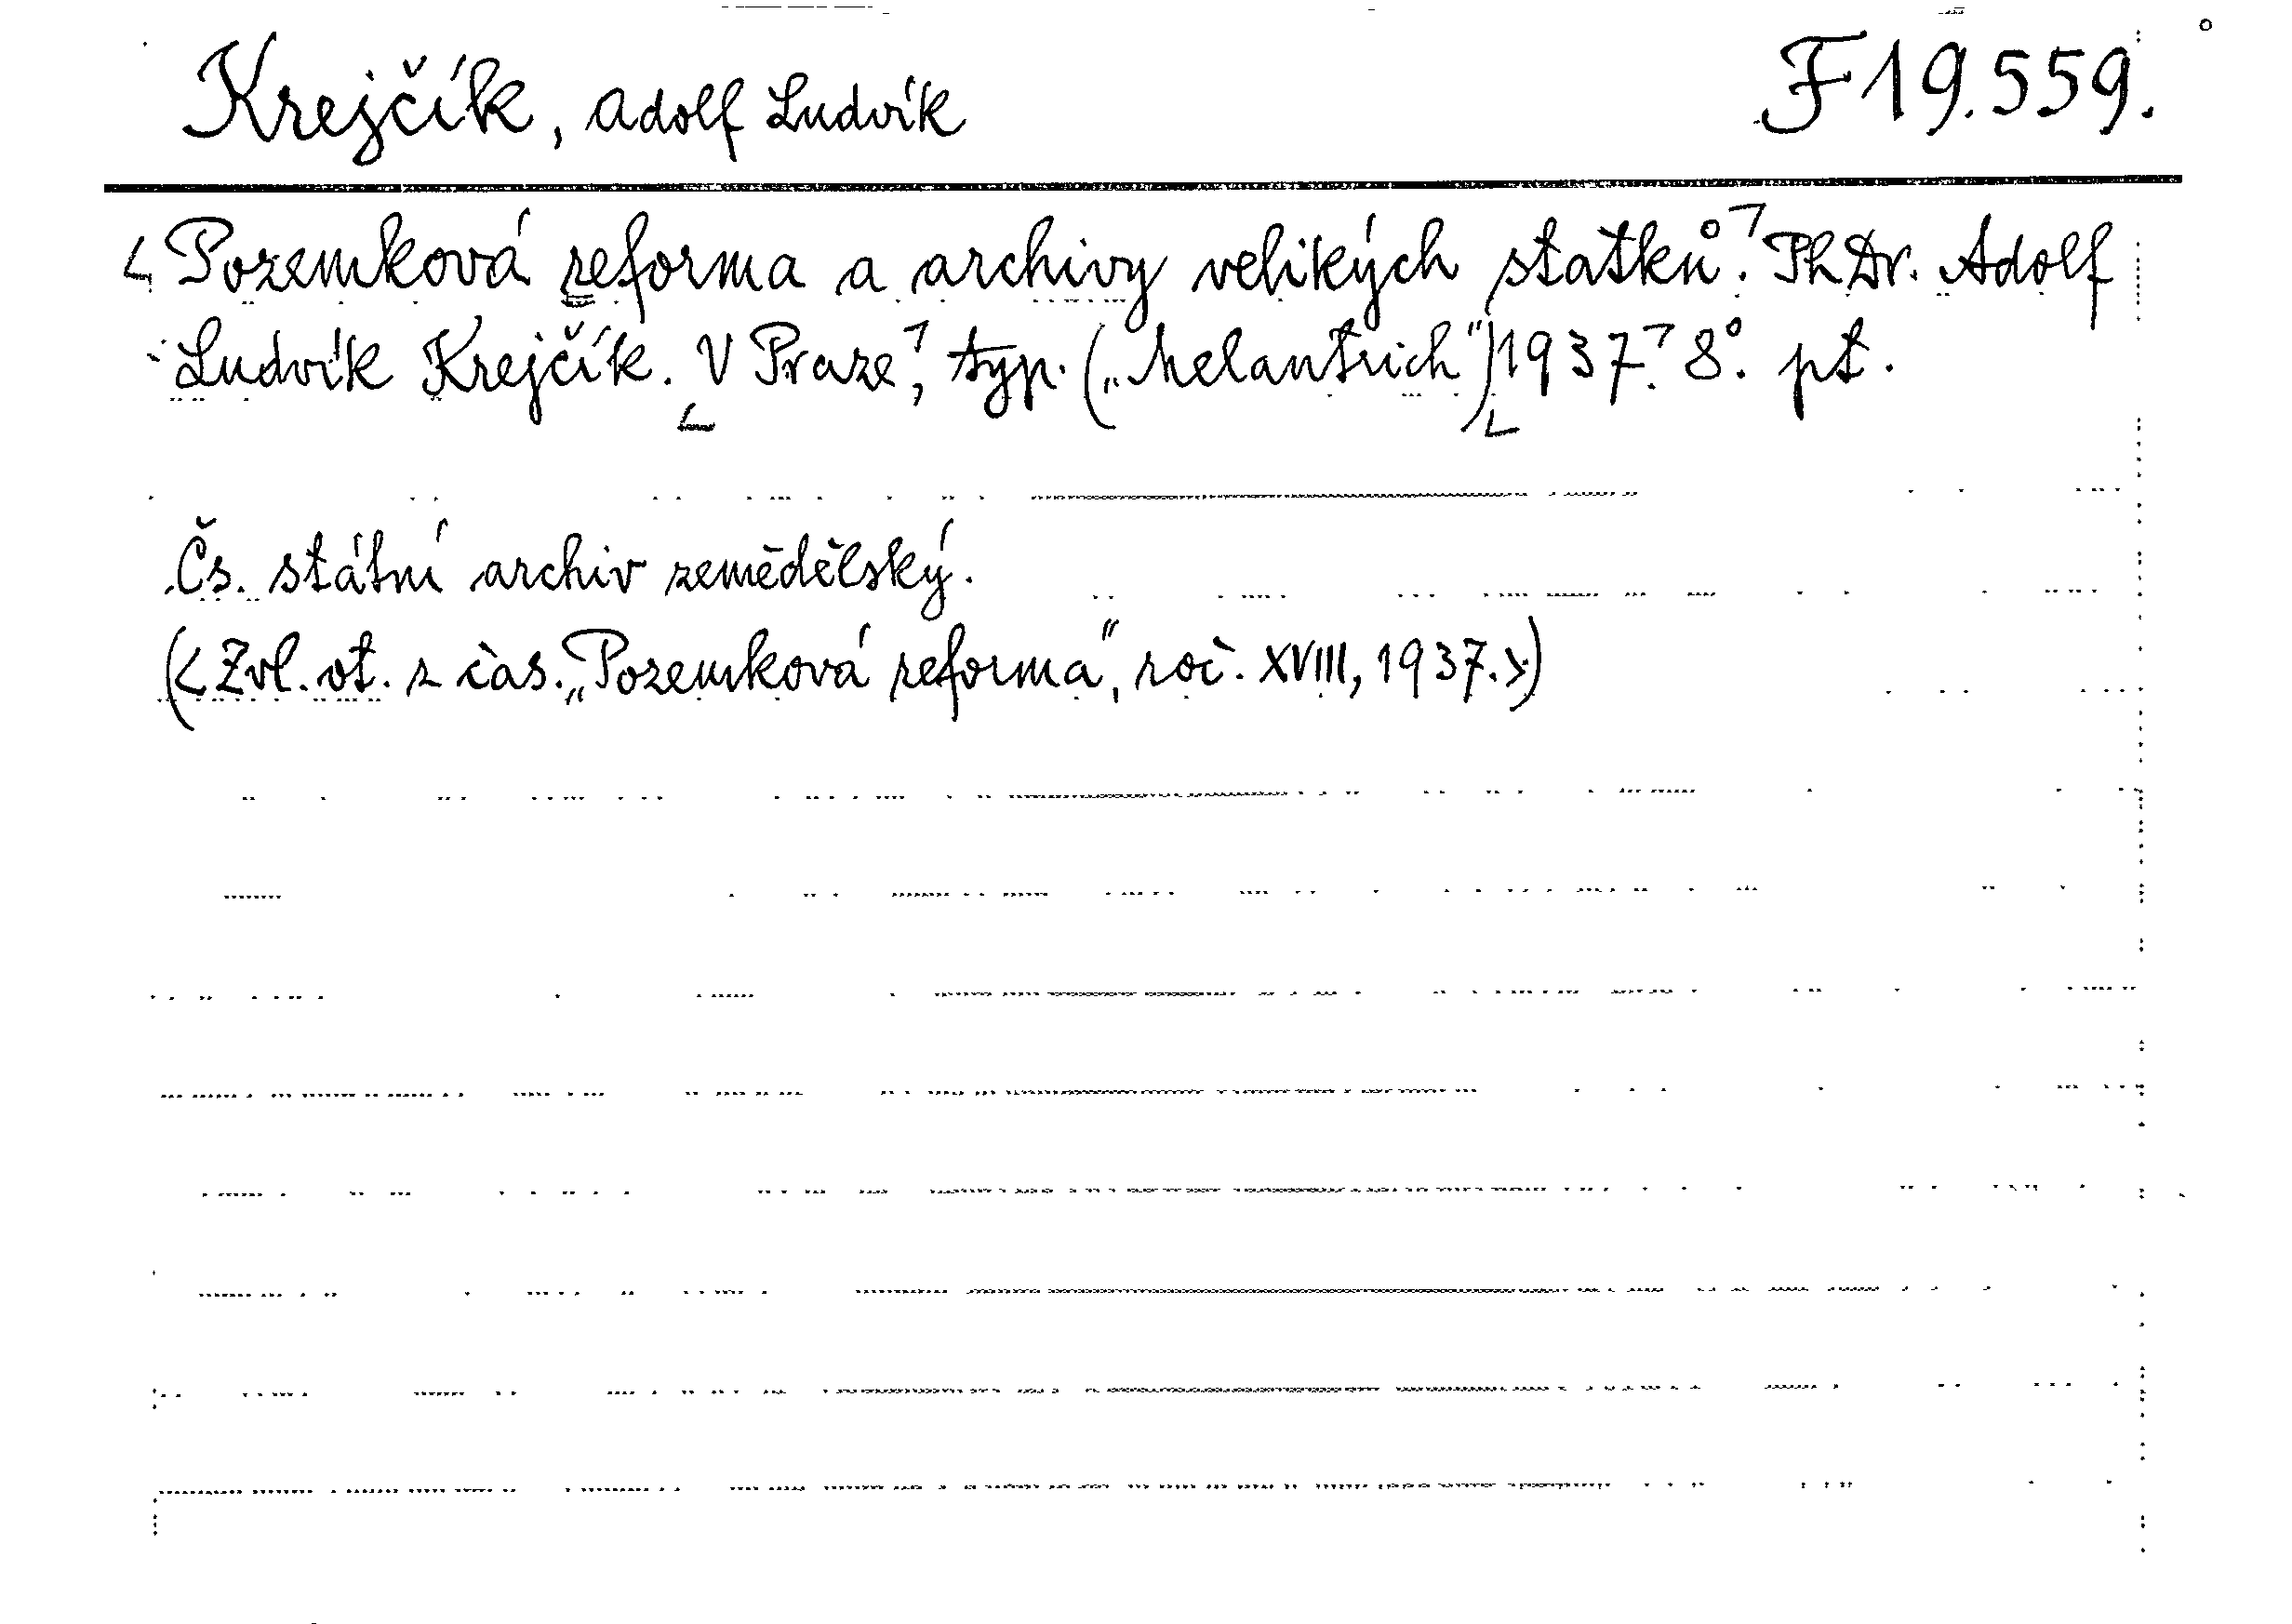 Krejčík, Adolf Ludvík F 19.559.
Pozemková reforma a archivy velikých statků. PhDr. Adolf
Ludvík Krejčík. V Praze, typ. („Melantrich“) 1937. 8°. pt.
Čs. státní archiv zemědělský.
(< Zvl. ot. z čas. „Pozemková reforma“, roč. XVIII, 1937. >)